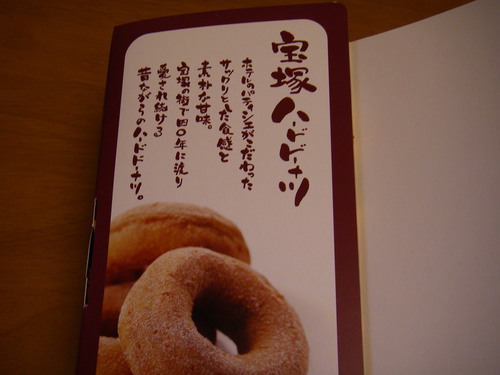 宝塚ハードドーナツ
ホテルのパティシエがこだわった
サックリとした食感と
素朴な甘味。
宝塚の街で四〇年に渡り
愛され続ける
昔ながらのハードドーナツ。